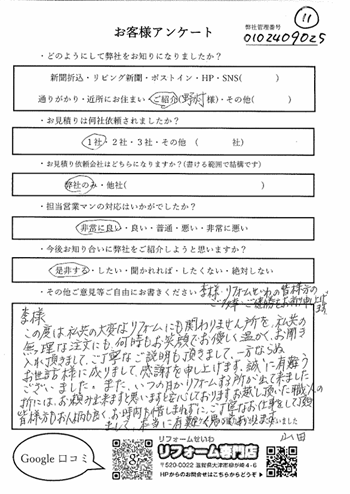 お客様アンケート
弊社管理番号
⑪
0102409025
・どのようにして弊社をお知りになりましたか？
新聞折込・リビング新聞・ポストイン・HP・SNS(　　　)
通りがかり・近所にお住まい・ご紹介(野村様)・その他(　　)
・お見積りは何社依頼されましたか？
1社・2社・3社・その他 (　　　社)
・お見積り依頼会社はどちらになりますか？(書ける範囲で結構です)
弊社のみ・他社(　　　)
・担当営業マンの対応はいかがでしたか？
非常に良い・良い・普通・悪い・非常に悪い
・今後お知り合いに弊社をご紹介しようと思いますか？
是非する・したい・聞かれれば・したくない・絶対しない
・その他ご意見等ご自由にお書きください
李様、リフォームせいわの皆様方の
李様
この度は私共の大変なリフォームにも関わりません所を、私共の
無理な注文にも、何時もお笑顔でお優しく温かく、お聞き
入れ頂きまして、ご丁寧なご説明も頂きまして、一方ならぬ
お世話様に成りまして、感謝を申し上げます。誠に有難う
ございました。また、いつの日かリフォームする所が出て来ました
折には、お頼み出来ますと思います
皆様方もお人柄も良く、お時間も惜しまれずに、ご丁寧なお仕事をして頂き
まして、本当に有難く
山田
Google 口コミ
リフォームせいわ
リフォーム専門店
〒520-0022 滋賀県大津市柳が崎4-6
HPからのお問合せはこちらからどうぞ